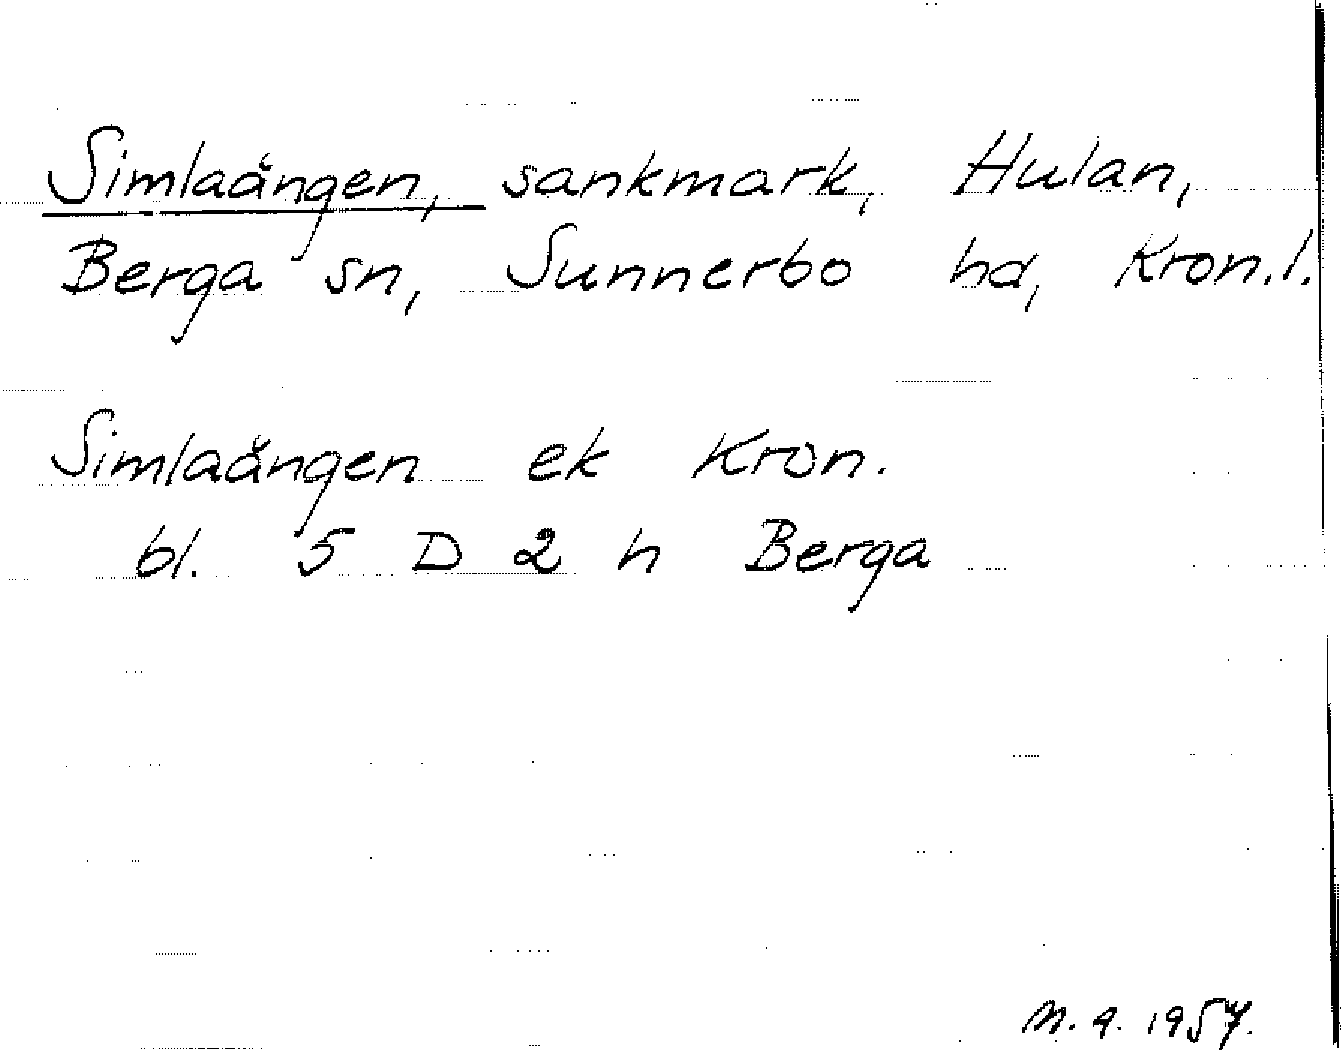 Simlaängen, sankmark, Hulan,
Berga sn, Sunnerbo hd, Kron.l.
Simlaängen ek Kron.
bl. 5 D 2 h Berga
1957.